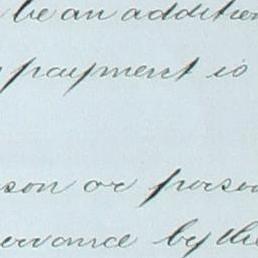 be an addition
payment is
son or person
ervance by the